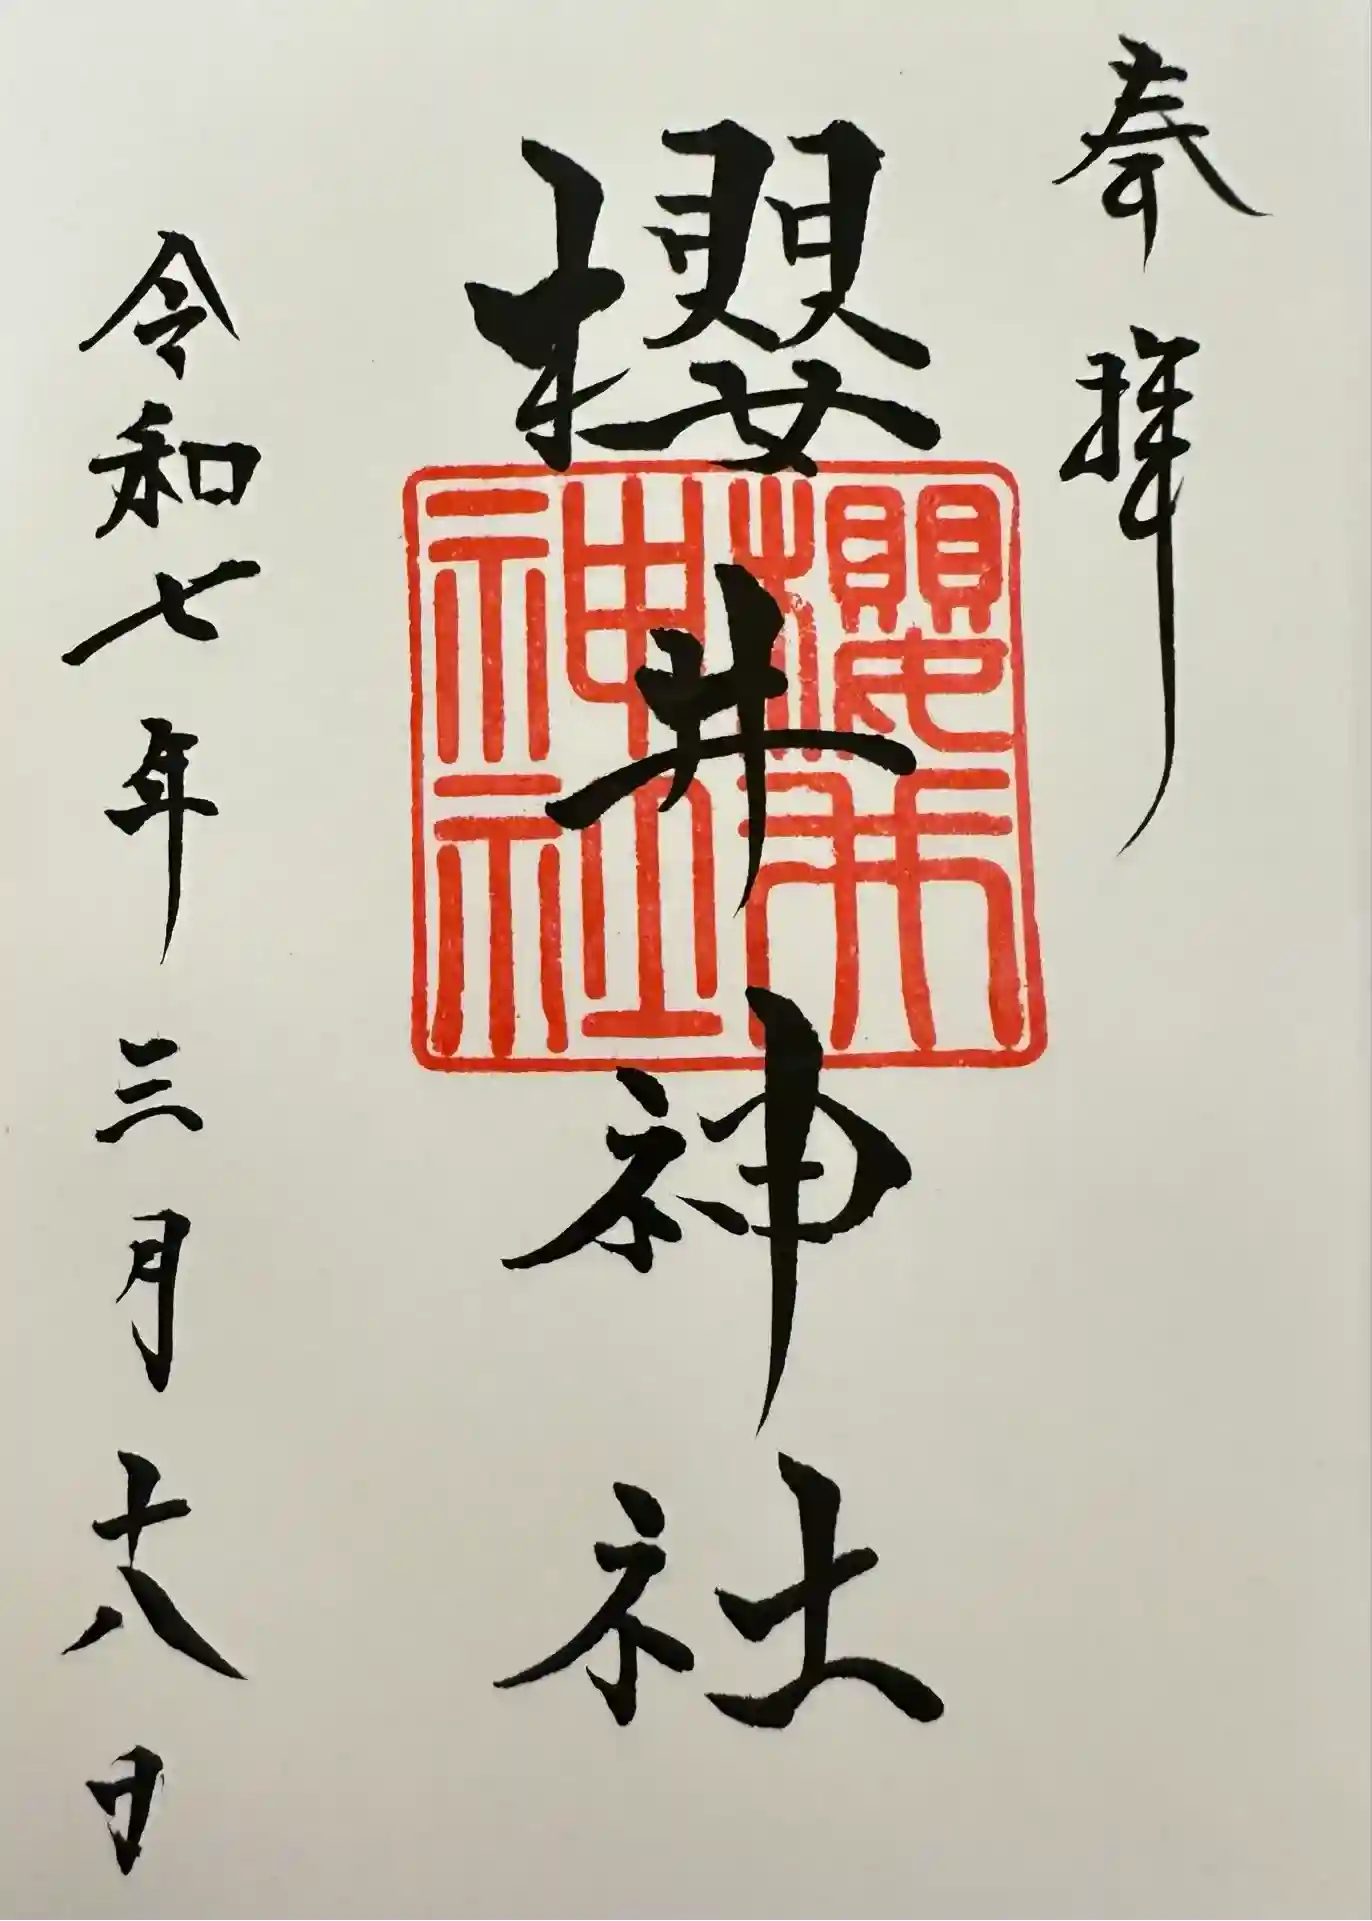 奉拝
櫻井神社
櫻井
神社
令和七年三月十八日